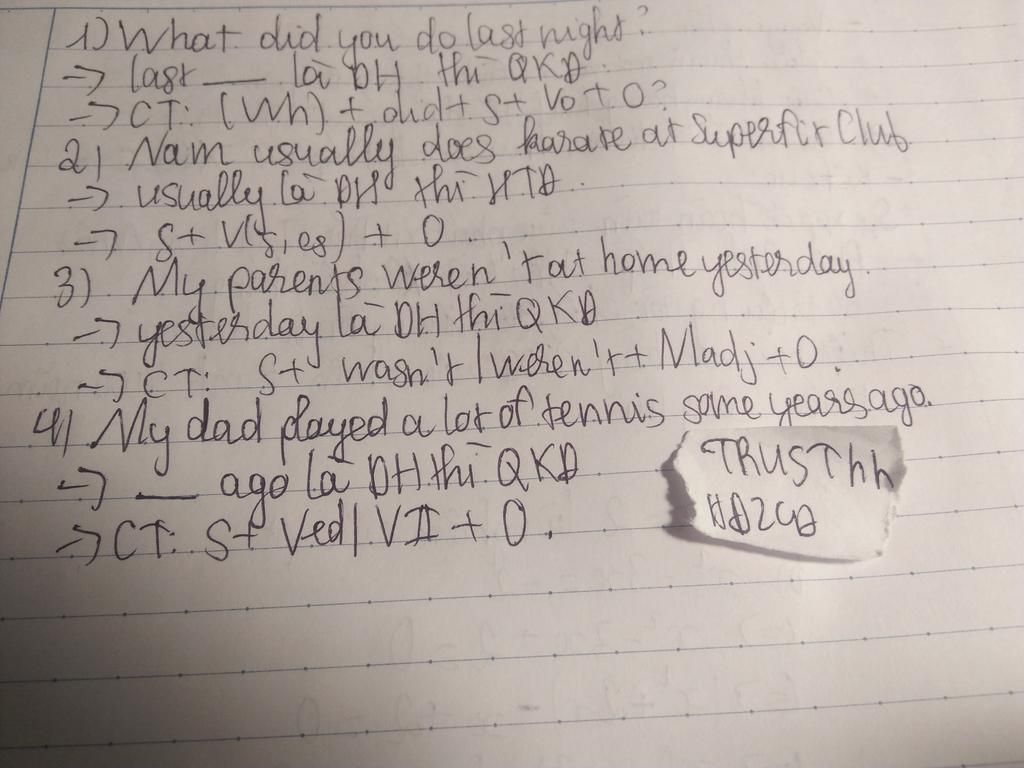 1) What did you do last night?
-> last ___ là DH thì QKĐ.
-> CT: (Wh) + did + S + Vo + O?
2) Nam usually does karate at Superfit Club.
-> usually là DH thì HTĐ.
-> S + V(s, es) + O.
3) My parents weren't at home yesterday.
-> yesterday là DH thì QKĐ
-> CT: S + wasn't / weren't + N/adj + O.
4) My dad played a lot of tennis some years ago.
-> ___ ago là DH thì QKĐ
-> CT: S + Ved / VII + O.
TRUSThh
HD2CD